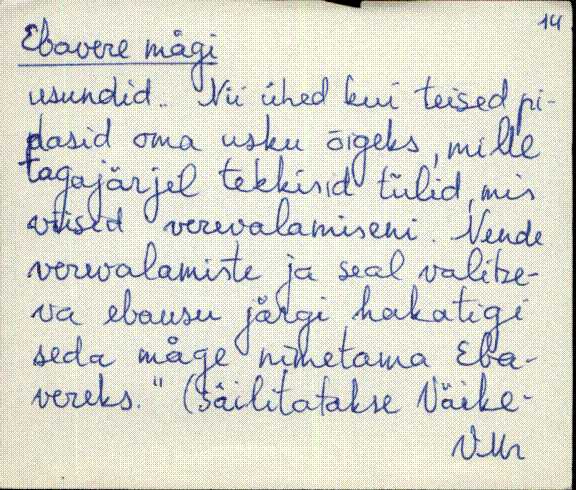 14
Ebavere mägi
usundid. Nii ühed kui teised pi-
dasid oma usku õigeks, mille
tagajärjel tekkisid tülid, mis
viisid verevalamiseni. Nende
verevalamiste ja seal valitse-
va ebausu järgi hakatigi
seda mäge nimetama Eba-
vereks." (Säilitatakse Väike-